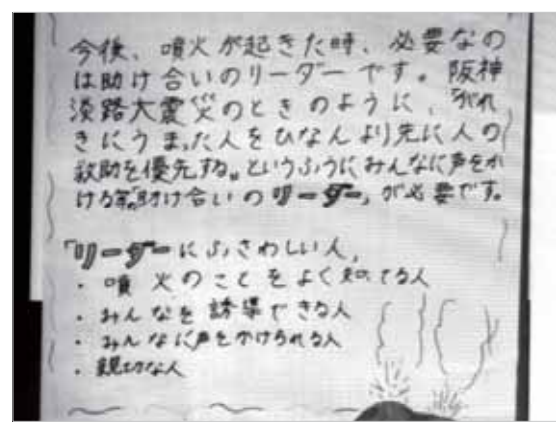 今後、噴火が起きた時、必要なの
は助け合いのリーダーです。阪神
淡路大震災のときのように、がれ
きにうまった人をひなんより先に人の
救助を優先する。というふうにみんなに声をか
ける等「助け合いのリーダー」が必要です。
「リーダーにふさわしい人」
・噴火のことをよく知ってる人
・みんなを誘導できる人
・みんなに声をかけられる人
・親切な人